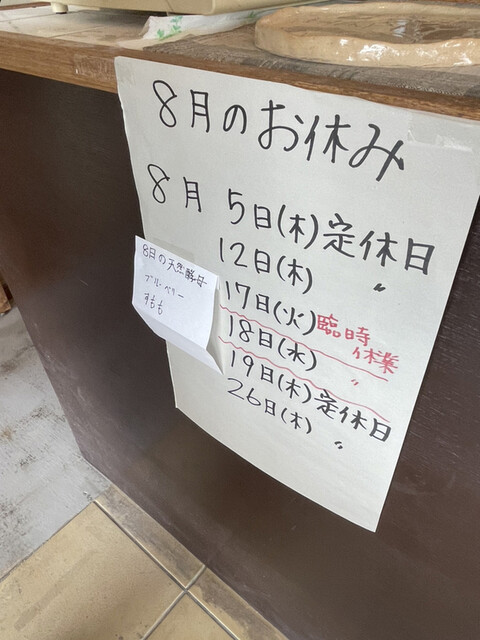 8月のお休み
8月 5日(木)定休日
12日(木) 〃
17日(火)臨時休業
18日(水) 〃
19日(木)定休日
26日(木) 〃
8日の天然酵母
ブルーベリー
すもも